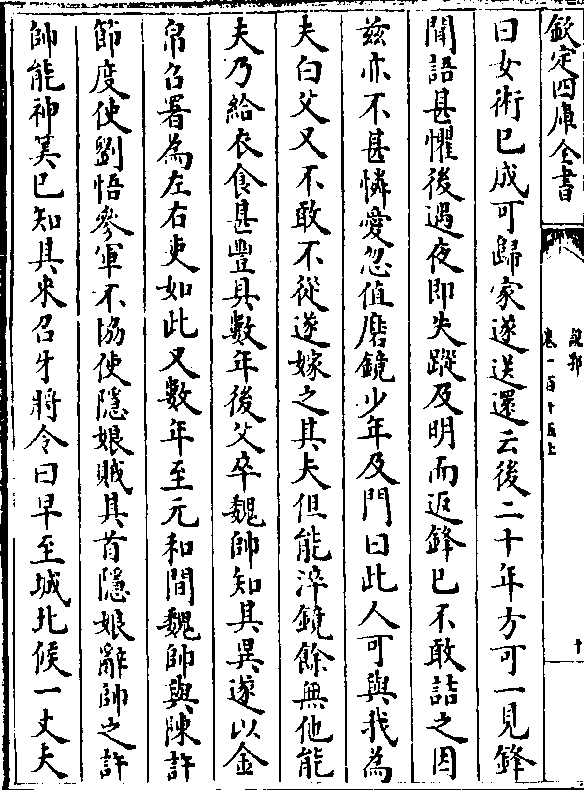 欽定四庫全書
說郛
卷一百十五上
十
曰女術已成可歸家遂送還云後二十年方可一見鋒
聞語甚懼後遇夜即失蹤及明而返鋒已不敢詰之因
兹亦不甚憐愛忽值磨鏡少年及門曰此人可與我為
夫白父又不敢不從遂嫁之其夫但能淬鏡餘無他能
夫乃給衣食甚豐具數年後父卒魏帥知其異遂以金
帛召署為左右吏如此又數年至元和間魏帥與陳許
節度使劉悟參軍不協使隱娘賊其首隱娘辭帥之許
帥能神筭已知其來召牙將令曰早至城北候一丈夫